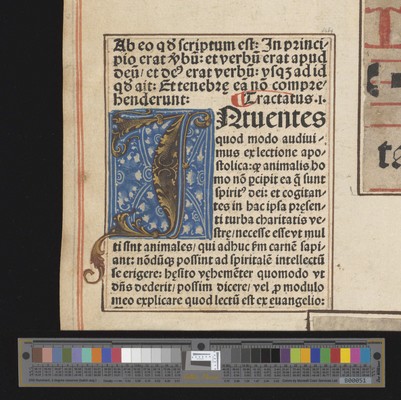 Ab eo qď scriptum est: In princi-
pio erat ṽbū: et verbū erat apud
deū/ et deꝰ erat verbū: vsqꝫ ad id
qď ait: Et tenebre eā nō compre-
henderunt: Tractatus .I.
INtuentes
quod modo audiui-
mus ex lectione apo-
stolica: qꝫ animalis ho
mo nō ꝑcipit ea q̄ sunt
spiritꝰ dei: et cogitan-
tes in hac ipsa pręsen-
ti turba charitatis ve-
strę/ necesse esse vt mul
ti sint animales/ qui adhuc ẜm carnē sapi-
ant: nōdūqꝫ possint ad spiritalē intellectū
se erigere: hęsito vęhemēter quomodo vt
dn̄s dederit/ possim dicere/ vel ꝓ modulo
meo explicare quod lectū est ex euangelio:
000051